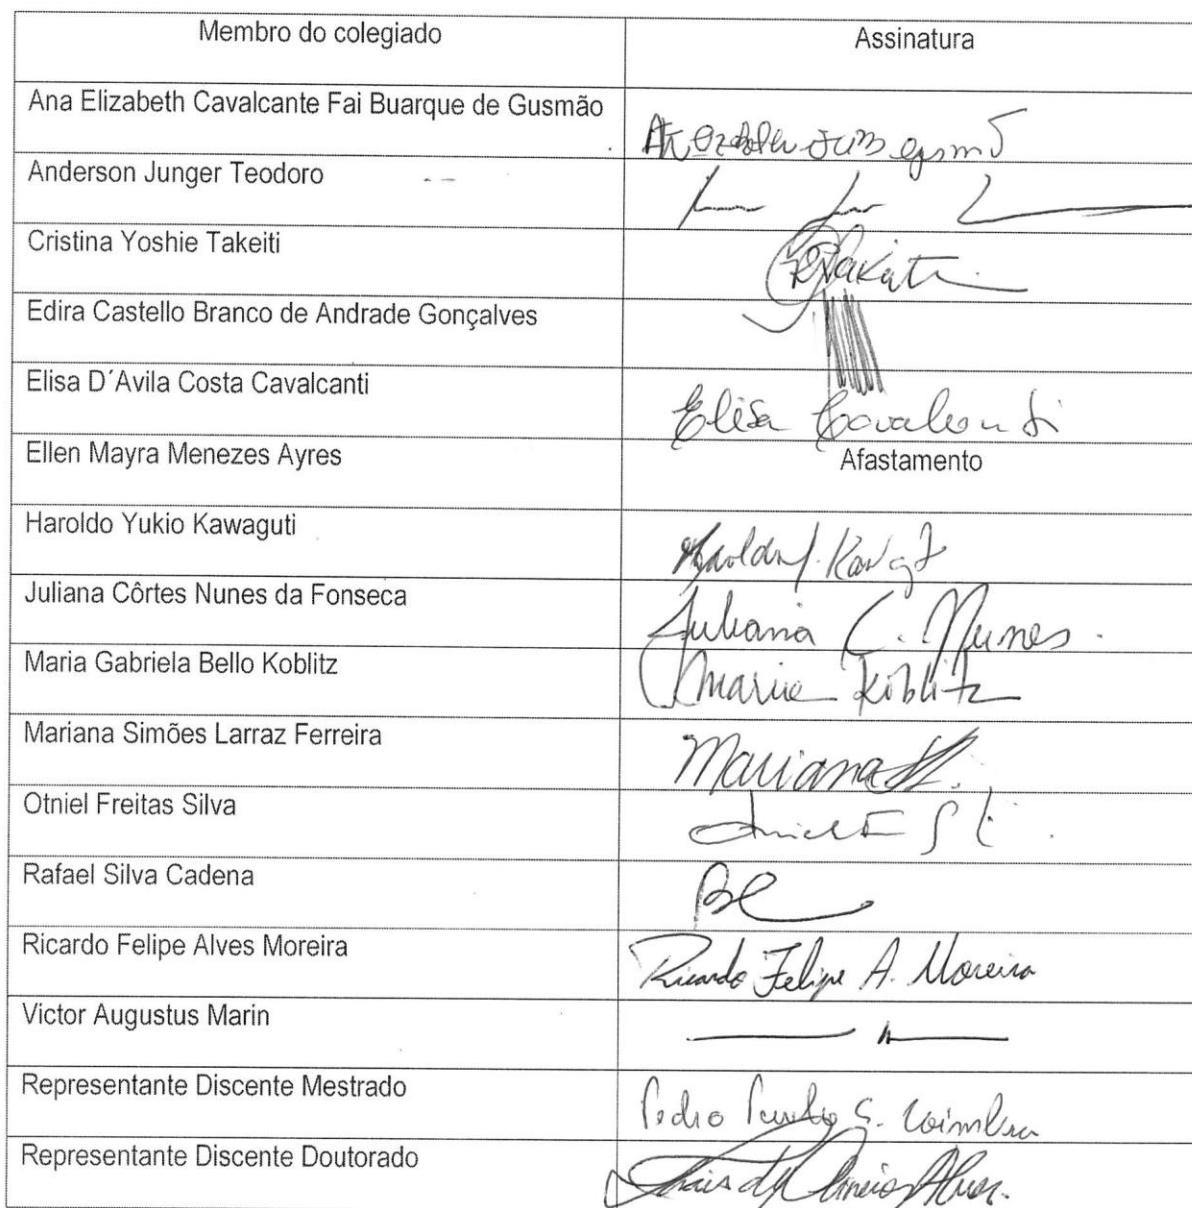 Membro do colegiado
Assinatura
Ana Elizabeth Cavalcante Fai Buarque de Gusmão
Anderson Junger Teodoro
Cristina Yoshie Takeiti
Edira Castello Branco de Andrade Gonçalves
Elisa D´Avila Costa Cavalcanti
Elisa Cavalcanti
Ellen Mayra Menezes Ayres
Afastamento
Haroldo Yukio Kawaguti
Juliana Côrtes Nunes da Fonseca
Juliana C. Nunes.
Maria Gabriela Bello Koblitz
Koblitz
Mariana Simões Larraz Ferreira
Mariana
Otniel Freitas Silva
Rafael Silva Cadena
Ricardo Felipe Alves Moreira
Ricardo Felipe A. Moreira
Victor Augustus Marin
Representante Discente Mestrado
Pedro S. Coimbra
Representante Discente Doutorado